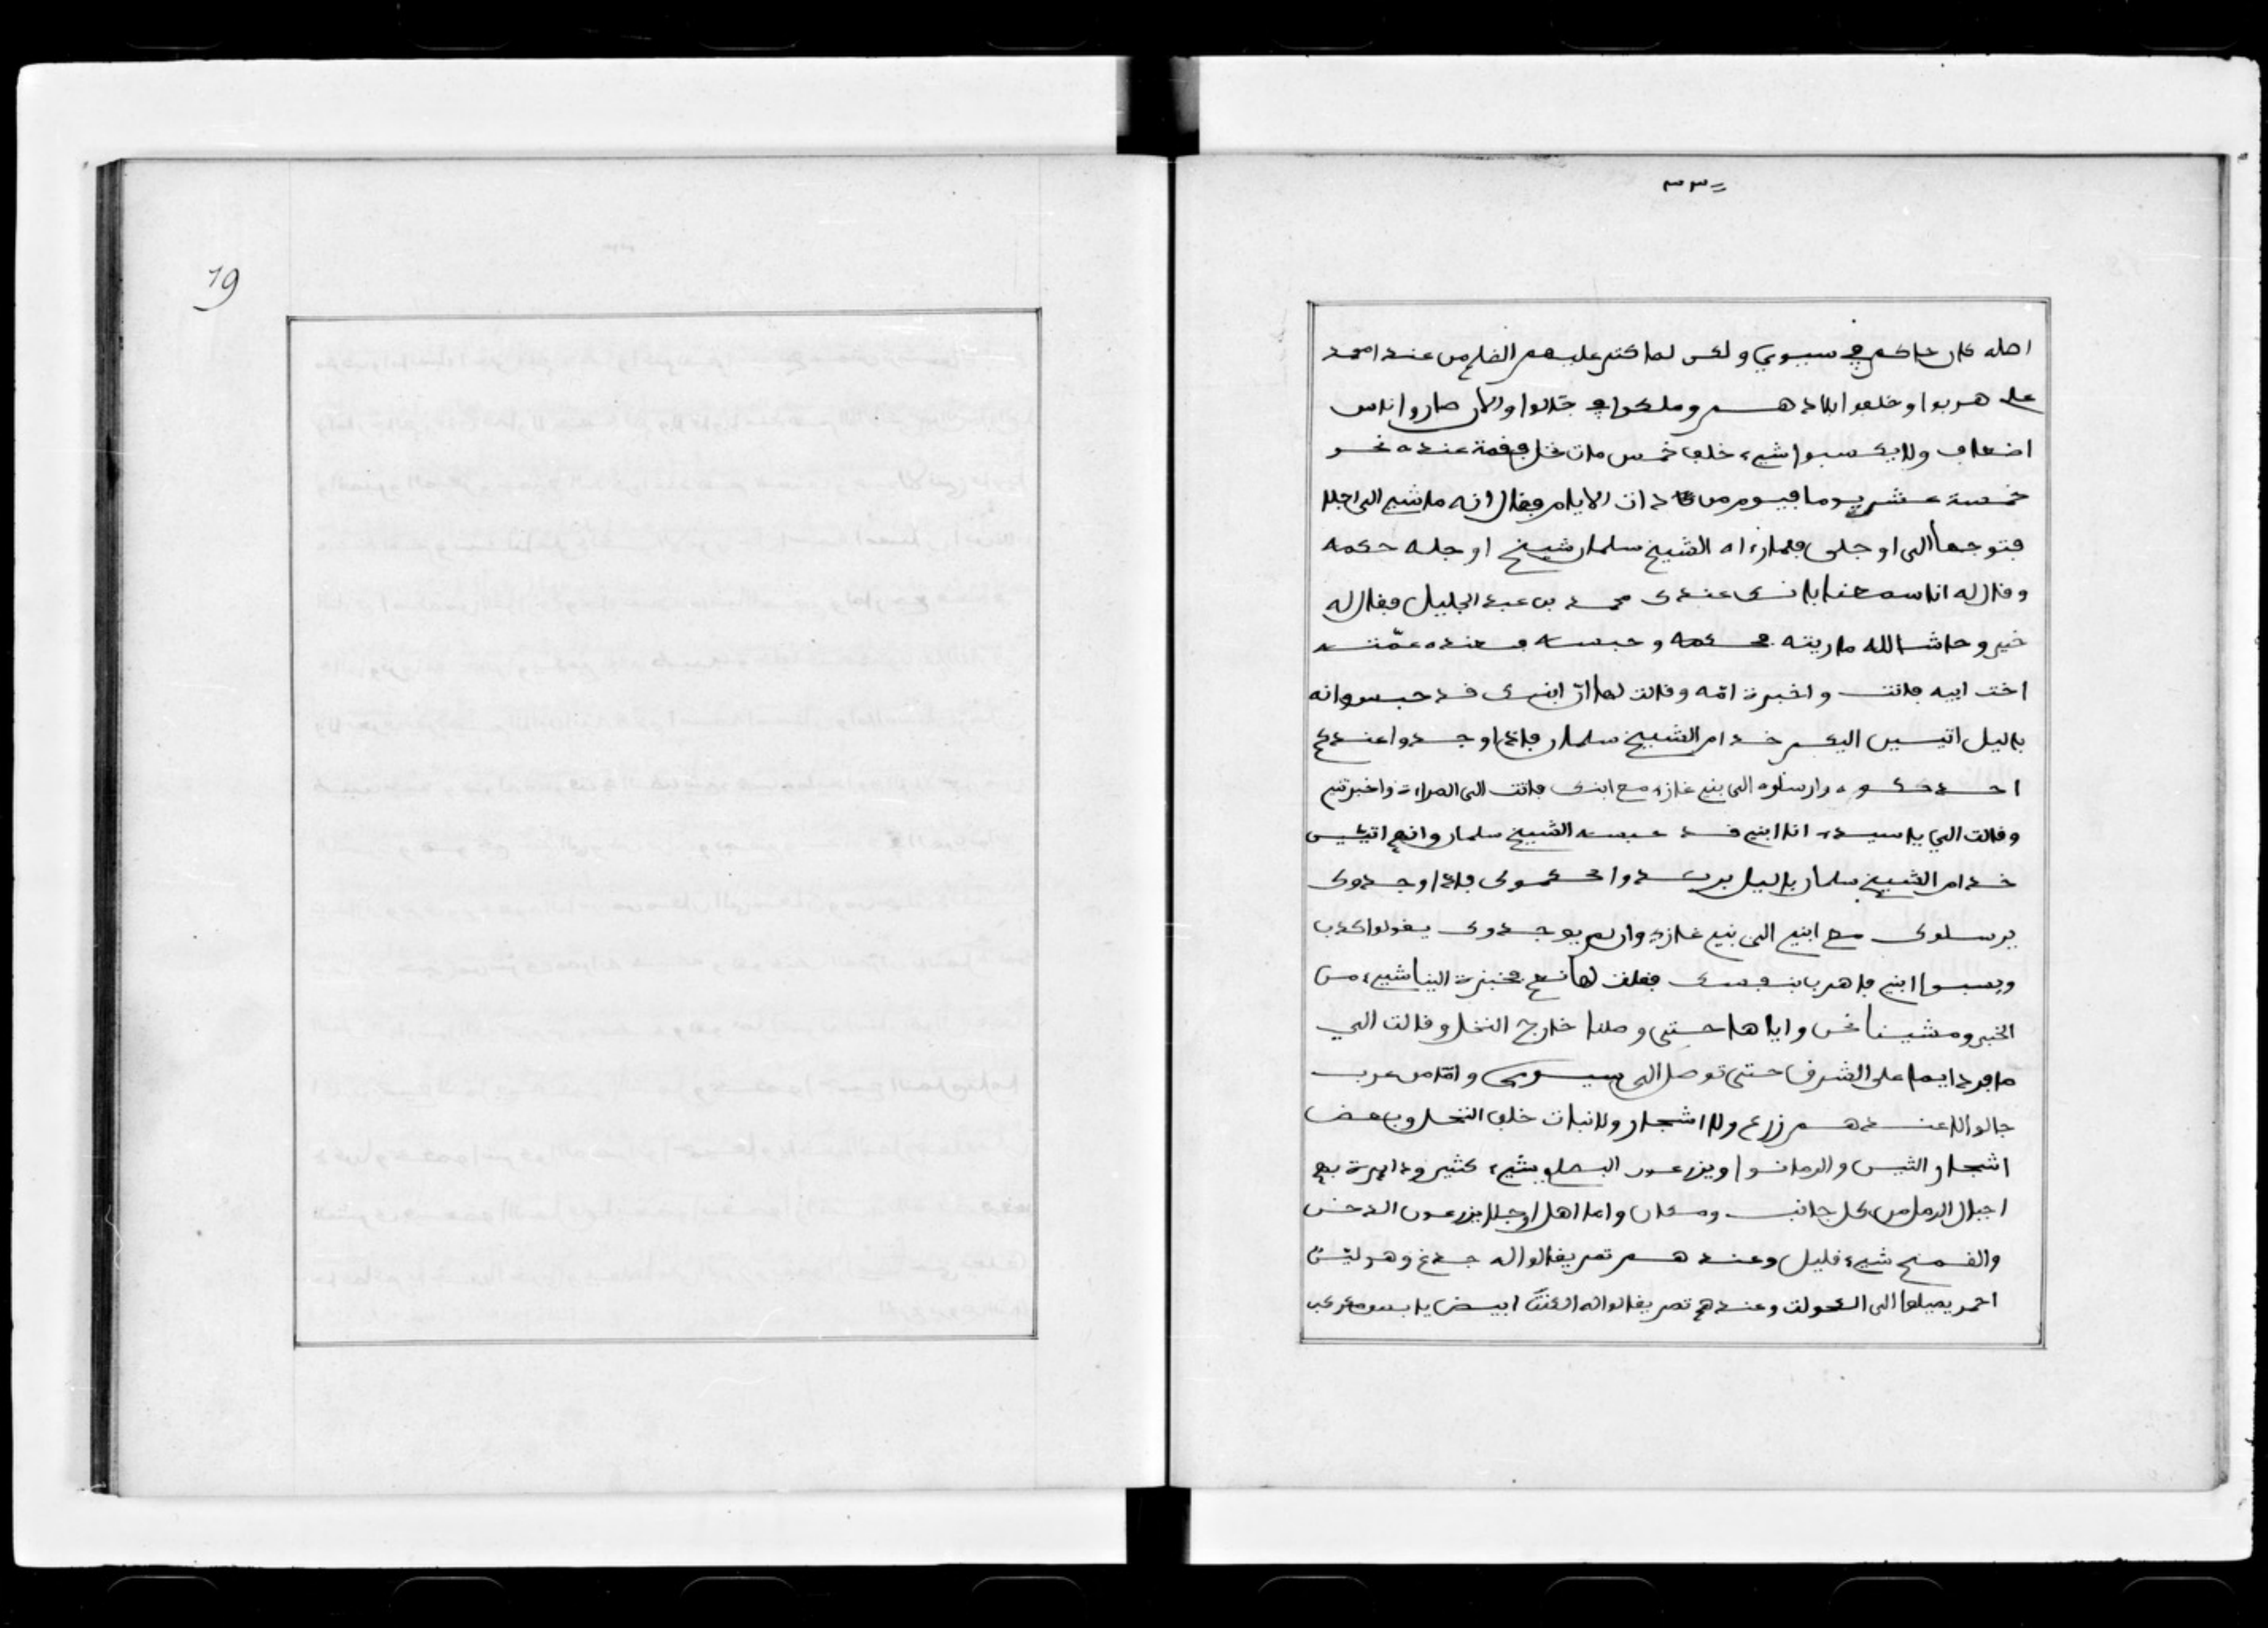 ٣٣
اصله كان حاكم في سيوي ولكن لما كثر عليهم الظلم من عند امحمد
علي هربوا وخلفوا بلادهم وملكوا في جالوا والان صاروا اناس
اضعاف ولا يكسبوا شيء خلاف خمس مات نخل فقمة عنده نحو
خمسة عشر يوما فيوم من ذات الايام فقال انه ماشي الى اجلا
فتوجها الى اوجلى فلما رءاه الشيخ سلمان شيخ اوجله حكمه
وقال له انا سمعنا بانك عندك محمد بن عبد الجليل فقال له
خير وحاشا لله ما ريته فحكمه وحبسه فعنده عمّته
اخت ابيه فاتت واخبرة امّه وقالت لها انّ ابنك قد حبس وانه
باليل اتيس اليكم خدام الشيخ سلمان فاذا وجدوا عندكم
احد حكموه وارسلوه الى بني غازي مع ابنك فاتت الى المراءة واخبرتني
وقالت الي يا سيدي انا ابني قد حبسه الشيخ سلمان وانهم اتيس
خدام الشيخ سلمان باليل يريدوا يحكموك فاذا وجدوك
يرسلوك مع ابني الى بني غازي وان لم يوجدوك يقولوا كذب
ويسبوا ابني فاهرب بنفسك فقلت لها نعم فخبزة الينا شيء من
الخبز ومشينا نحن واياها حتى وصلنا خارج النخل وقالت الي
سافر دايما على الشرق حتى توصل الى سيوي وامّا من عرب
جالوا لا عندهم زرع ولا اشجار ولا نبات خلاف النخل وبعض
اشجار التيس والرمانوا ويزرعون البصل بشيء كثير ودايرة بهم
اجبال الرمل من كل جانب ومكان واما اهل اوجلا يزرعون الدخن
والقمح شيء قليل وعندهم تمر يقالوا له جدغ وهو ليّن
احمر يميلها الى الكحولت وعندهم تمر يقالوا له ابيض يابس
19